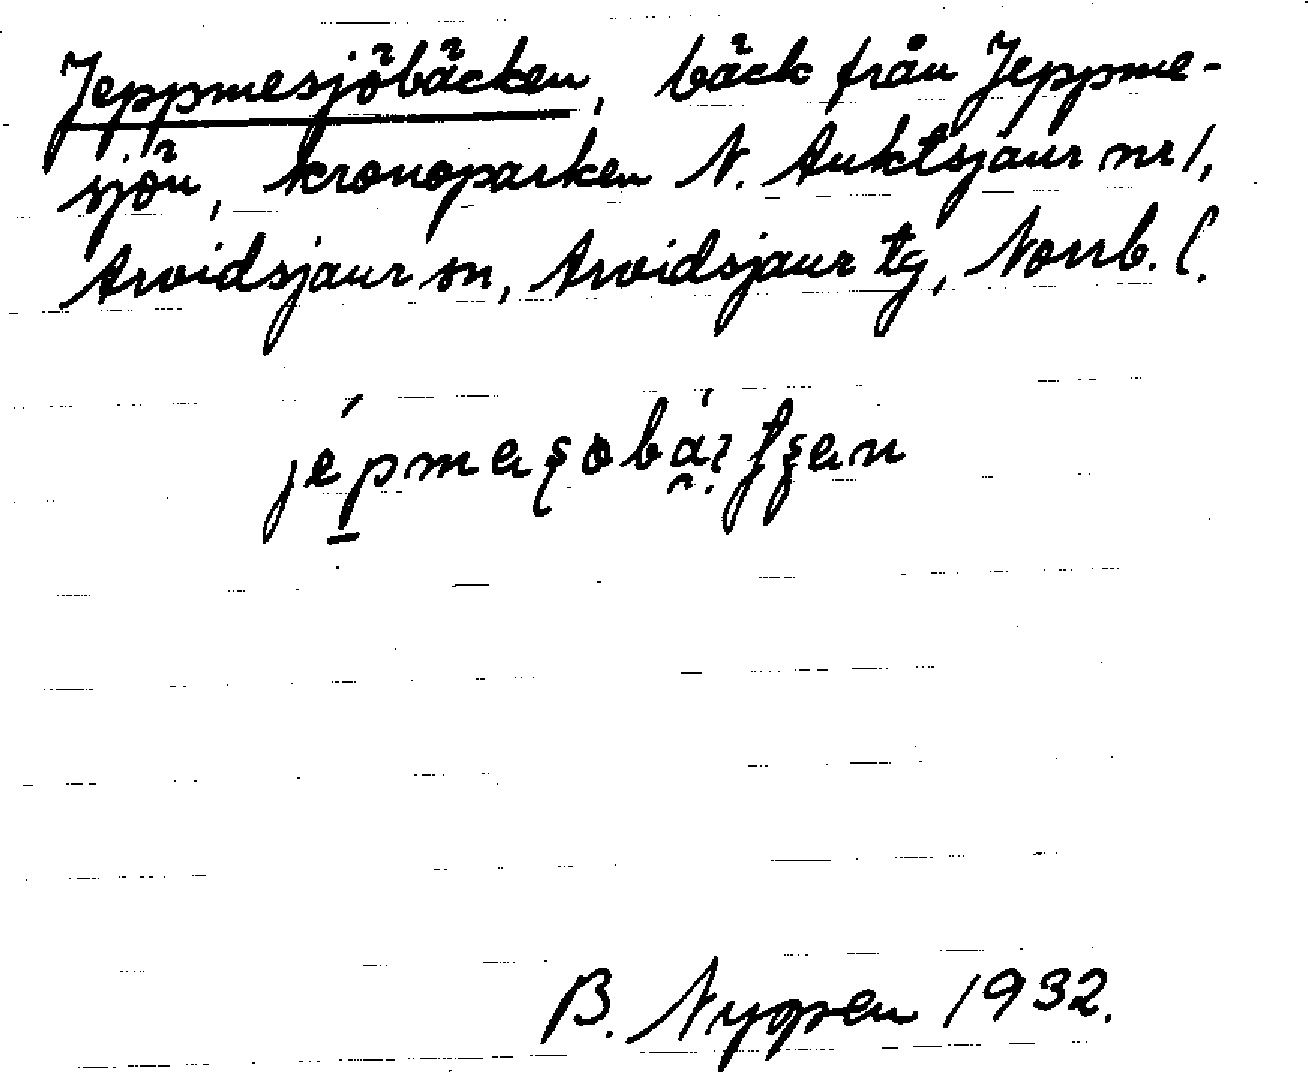 Jeppmesjöbäcken, bäck från Jeppme-
sjön, kronoparken N. Auktsjaur nr 1,
Arvidsjaur sn, Arvidsjaur tg, Norrb. l.
B. Nyppen 1932.